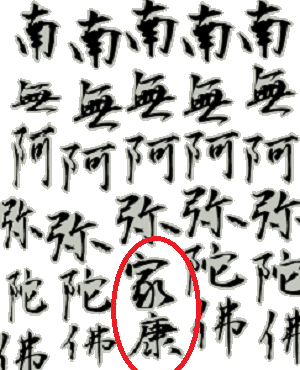 南無阿弥陀佛
南無阿弥陀佛
南無阿弥家康
南無阿弥陀佛
南無阿弥陀佛